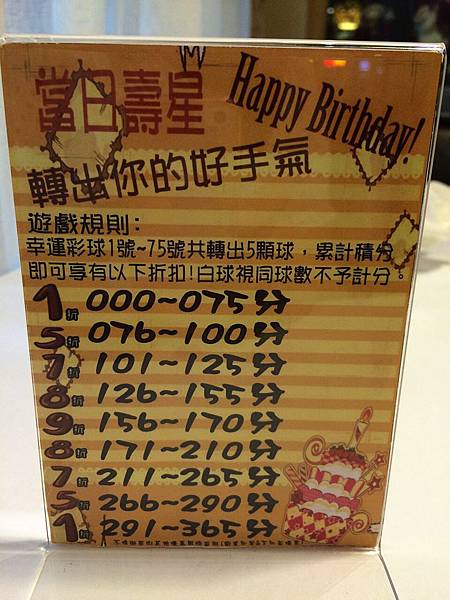 當日壽星
Happy Birthday!
轉出你的好手氣
遊戲規則:
幸運彩球1號~75號共轉出5顆球,累計積分
即可享有以下折扣!白球視同球數不予計分。
1折 000~075分
5折 076~100分
7折 101~125分
8折 126~155分
9折 156~170分
8折 171~210分
7折 211~265分
5折 266~290分
1折 291~365分